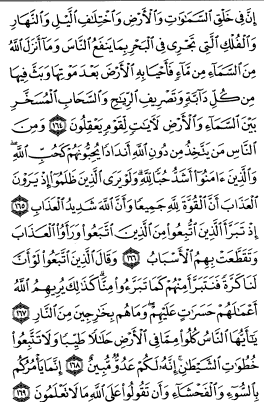 إِنَّ فِي خَلْقِ السَّمَٰوَٰتِ وَالْأَرْضِ وَاخْتِلَٰفِ الَّيْلِ وَالنَّهَارِ
وَالْفُلْكِ الَّتِي تَجْرِي فِي الْبَحْرِ بِمَا يَنفَعُ النَّاسَ وَمَا أَنزَلَ اللَّهُ
مِنَ السَّمَاءِ مِن مَّاءٍ فَأَحْيَا بِهِ الْأَرْضَ بَعْدَ مَوْتِهَا وَبَثَّ فِيهَا
مِن كُلِّ دَابَّةٍ وَتَصْرِيفِ الرِّيَٰحِ وَالسَّحَابِ الْمُسَخَّرِ
بَيْنَ السَّمَاءِ وَالْأَرْضِ لَءَايَٰتٍ لِّقَوْمٍ يَعْقِلُونَ ١٦٤ وَمِنَ
النَّاسِ مَن يَتَّخِذُ مِن دُونِ اللَّهِ أَندَادًا يُحِبُّونَهُمْ كَحُبِّ اللَّهِ ۖ
وَالَّذِينَ ءَامَنُوا أَشَدُّ حُبًّا لِّلَّهِ ۗ وَلَوْ يَرَى الَّذِينَ ظَلَمُوا إِذْ يَرَوْنَ
الْعَذَابَ أَنَّ الْقُوَّةَ لِلَّهِ جَمِيعًا وَأَنَّ اللَّهَ شَدِيدُ الْعَذَابِ ١٦٥
إِذْ تَبَرَّأَ الَّذِينَ اتُّبِعُوا مِنَ الَّذِينَ اتَّبَعُوا وَرَأَوُا الْعَذَابَ
وَتَقَطَّعَتْ بِهِمُ الْأَسْبَابُ ١٦٦ وَقَالَ الَّذِينَ اتَّبَعُوا لَوْ أَنَّ
لَنَا كَرَّةً فَنَتَبَرَّأَ مِنْهُمْ كَمَا تَبَرَّءُوا مِنَّا ۗ كَذَٰلِكَ يُرِيهِمُ اللَّهُ
أَعْمَٰلَهُمْ حَسَرَٰتٍ عَلَيْهِمْ ۖ وَمَا هُم بِخَٰرِجِينَ مِنَ النَّارِ ١٦٧
يَٰأَيُّهَا النَّاسُ كُلُوا مِمَّا فِي الْأَرْضِ حَلَٰلًا طَيِّبًا وَلَا تَتَّبِعُوا
خُطُوَٰتِ الشَّيْطَٰنِ ۚ إِنَّهُ لَكُمْ عَدُوٌّ مُّبِينٌ ١٦٨ إِنَّمَا يَأْمُرُكُم
بِالسُّوءِ وَالْفَحْشَاءِ وَأَن تَقُولُوا عَلَى اللَّهِ مَا لَا تَعْلَمُونَ ١٦٩